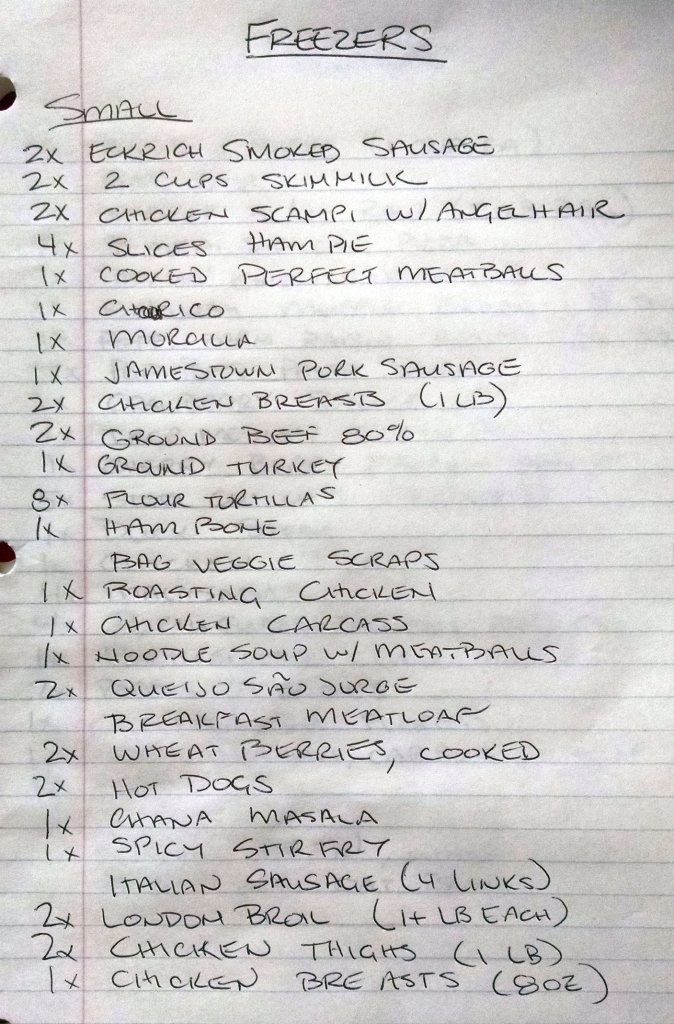 FREEZERS
SMALL
2x ECKRICH SMOKED SAUSAGE
2x 2 CUPS SKIM MILK
2x CHICKEN SCAMPI W/ ANGEL HAIR
4x SLICES HAM PIE
1x COOKED PERFECT MEATBALLS
1x CHORICO
1x MORCILLA
1x JAMESTOWN PORK SAUSAGE
2x CHICKEN BREASTS (1 LB)
2x GROUND BEEF 80%
1x GROUND TURKEY
8x FLOUR TORTILLAS
1x HAM BONE
BAG VEGGIE SCRAPS
1x ROASTING CHICKEN
1x CHICKEN CARCASS
1x NOODLE SOUP W/ MEATBALLS
2x QUEIJO SÃO JORGE
BREAKFAST MEATLOAF
2x WHEAT BERRIES, COOKED
2x HOT DOGS
1x CHANA MASALA
1x SPICY STIR FRY
ITALIAN SAUSAGE (4 LINKS)
2x LONDON BROIL (1+ LB EACH)
2x CHICKEN THIGHS (1 LB)
1x CHICKEN BREASTS (8OZ)